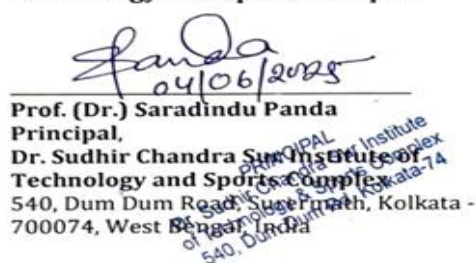 Panda
04/06/2025
Prof. (Dr.) Saradindu Panda
Principal,
Dr. Sudhir Chandra Sur Institute of
Technology and Sports Complex
540, Dum Dum Road, Surermath, Kolkata -
700074, West Bengal, India
PRINCIPAL
Dr. Sudhir Chandra Sur Institute
of Technology & Sports Complex
540, Dum Dum Rd. Kolkata-74